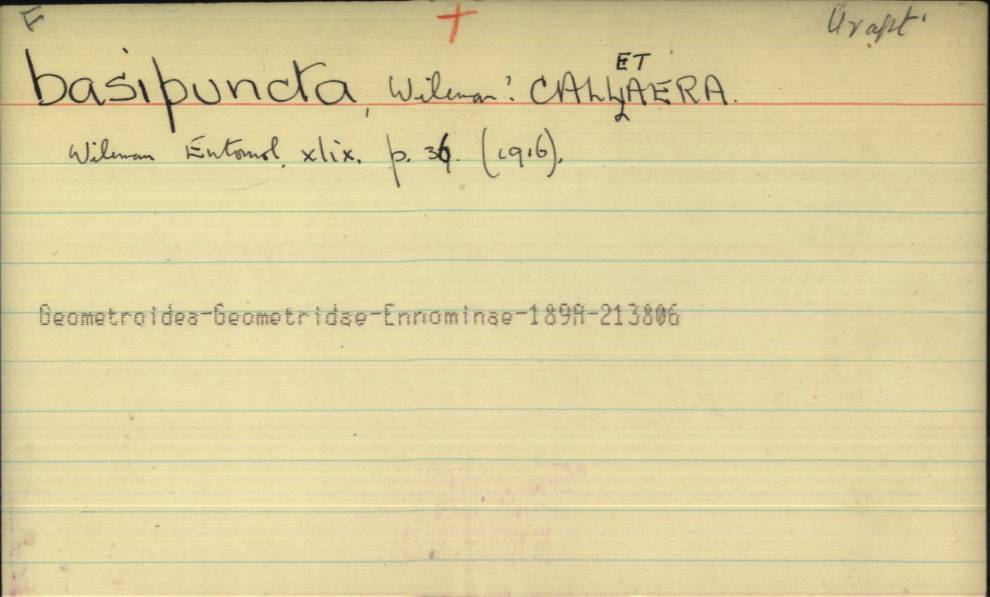 E Urapt.
basipuncta, Wileman: CALLETAERA.
Wileman Entomol. xlix. p. 36. (1916).
Geometroidea-Geometridae-Ennominae-189A-213806